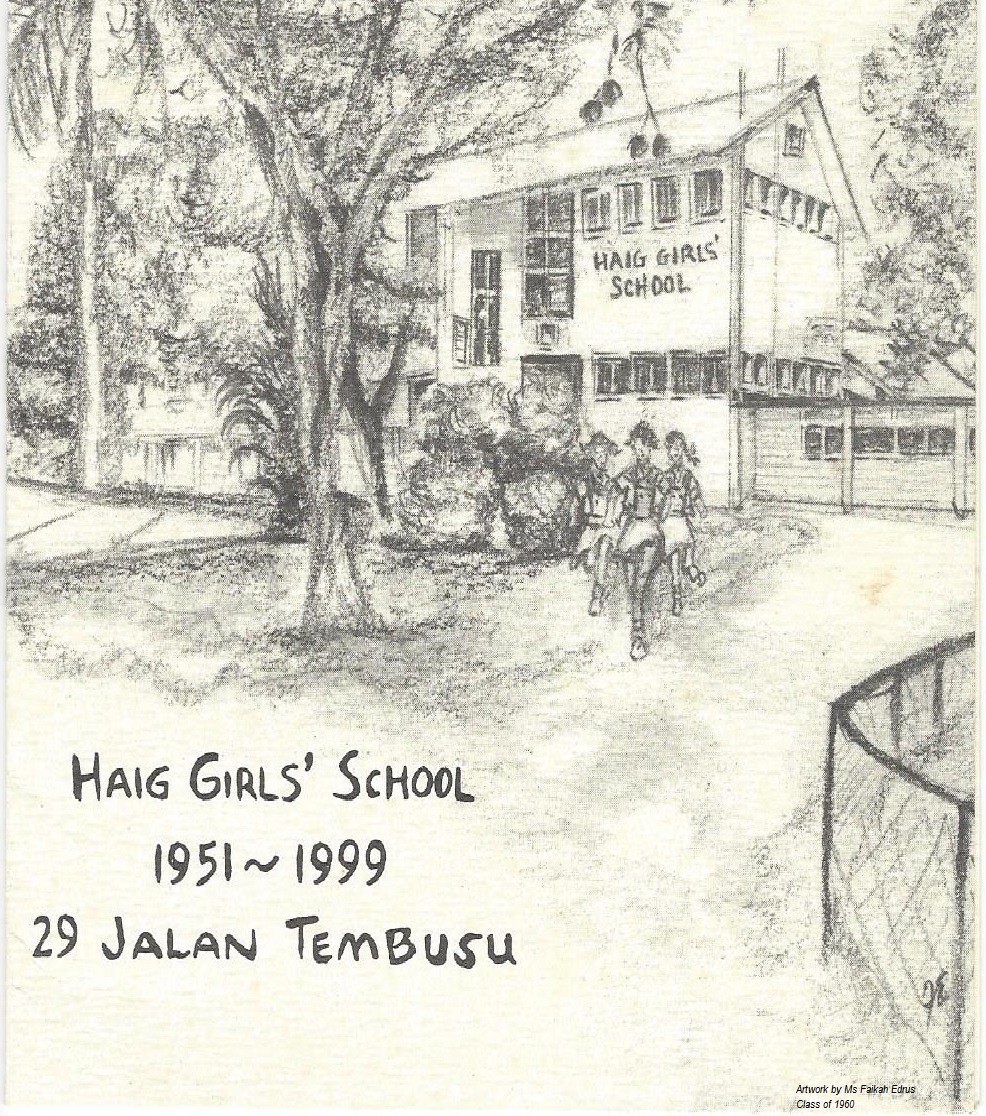 HAIG GIRLS'
SCHOOL
HAIG GIRLS' SCHOOL
1951~1999
29 JALAN TEMBUSU
Artwork by Ms Faikah Edrus
Class of 1960